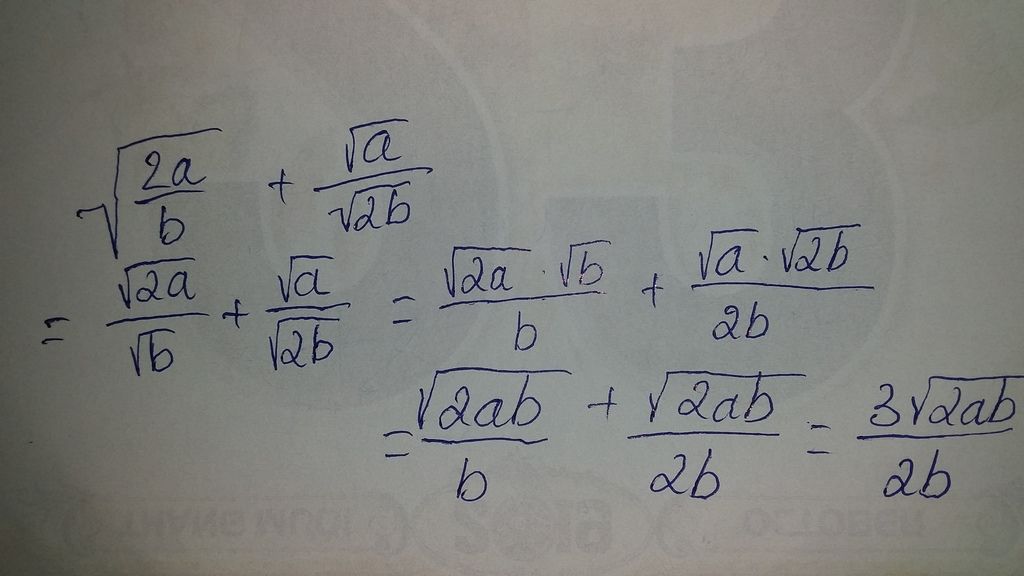 √(2a/b) + √a/√(2b)
= √(2a)/√b + √a/√(2b) = (√(2a) · √b)/b + (√a · √(2b))/(2b)
= √(2ab)/b + √(2ab)/(2b) = 3√(2ab)/(2b)